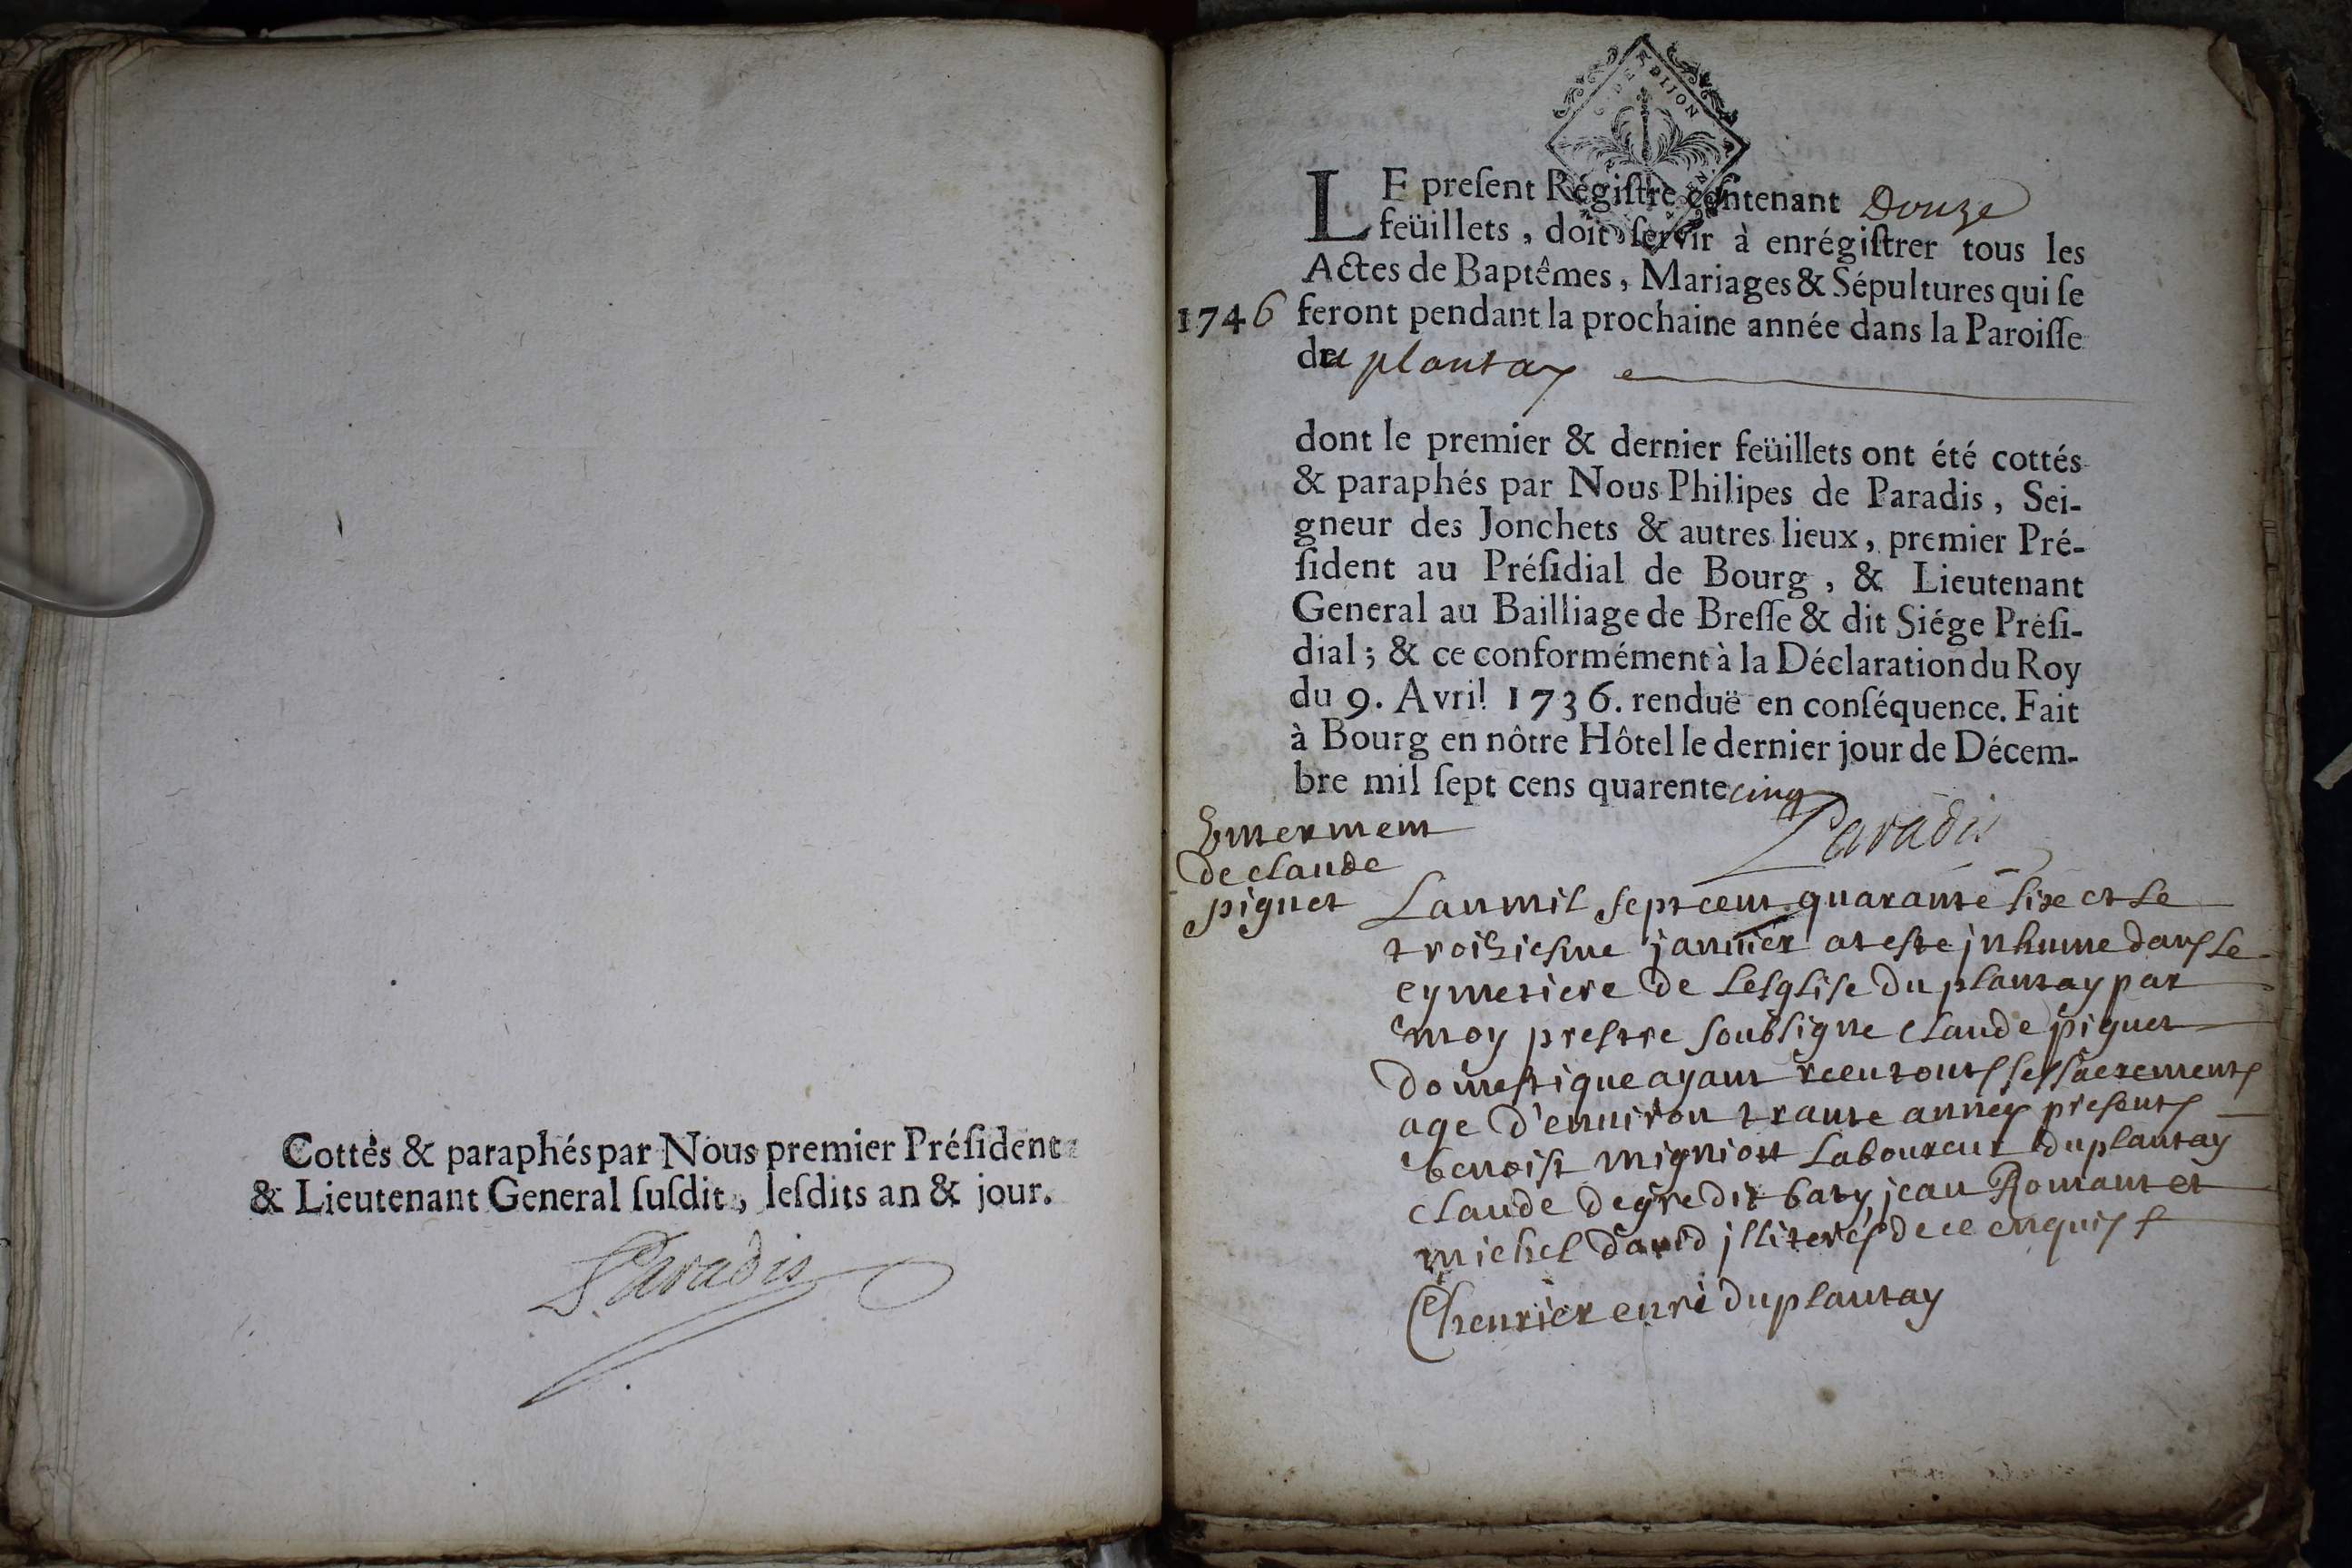 Cottés & paraphés par Nous premier Préſident
& Lieutenant General ſuſdit, leſdits an & jour.
Paradis
DIJON
LE preſent Régiſtre contenant Douze
feüillets, doit ſervir à enrégiſtrer tous les
Actes de Baptêmes, Mariages & Sépultures qui ſe
1746 feront pendant la prochaine année dans la Paroiſſe
du plantay
dont le premier & dernier feüillets ont été cottés
& paraphés par Nous Philipes de Paradis, Sei-
gneur des Jonchets & autres lieux, premier Pré-
ſident au Préſidial de Bourg, & Lieutenant
General au Bailliage de Breſſe & dit Siége Préſi-
dial; & ce conformément à la Déclaration du Roy
du 9. Avril 1736. renduë en conſéquence. Fait
à Bourg en nôtre Hôtel le dernier jour de Décem-
bre mil ſept cens quarente cinq
Paradis
Enterment
de claude
piquet
Lan mil sept cent quarante six et le
troiziesme janvier at este jnhume dans le
cymetiere de Lesglise du plantay par
moy prestre soubsigne claude piquet
domestique ayant receu tous ses sacrements
age d'environ trante annes presents
benoist mignion Laboureur du plantay
claude degre dit baty, jean Romant et
michel david jlliterés de ce enquis
Chenrier curé du plantay